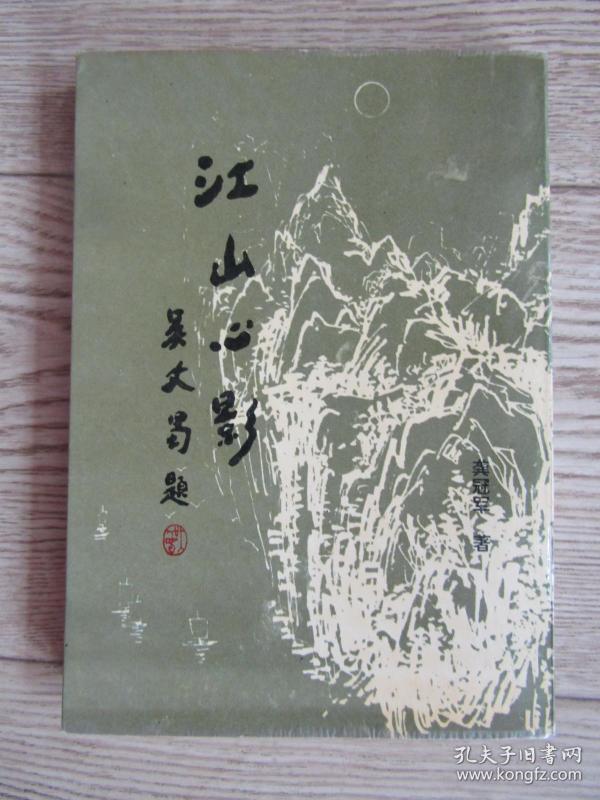 江山心影
吴丈蜀题
龚冠军 著
孔夫子旧书网
www.kongfz.com